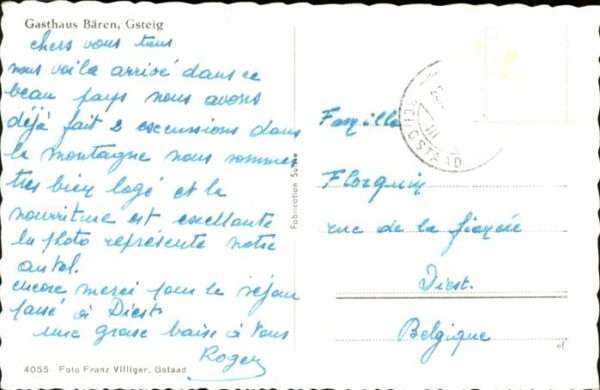 Gasthaus Bären, Gsteig
chers vous tous
nous voila arrivé dans ce
beau pays nous avons
déjà fait 2 excussions dans
la montagne nous sommes
tres bien logé et la
nourriture est excellante
la photo représente notre
autel.
encore merci pour le séjour
passé à Diest
une grose baise à Vous
Roger
4055 Foto Franz Villiger, Gstaad
Fabrication Suisse
GSTAAD
Famille
Florquin
rue de la fiancée
Diest.
Belgique